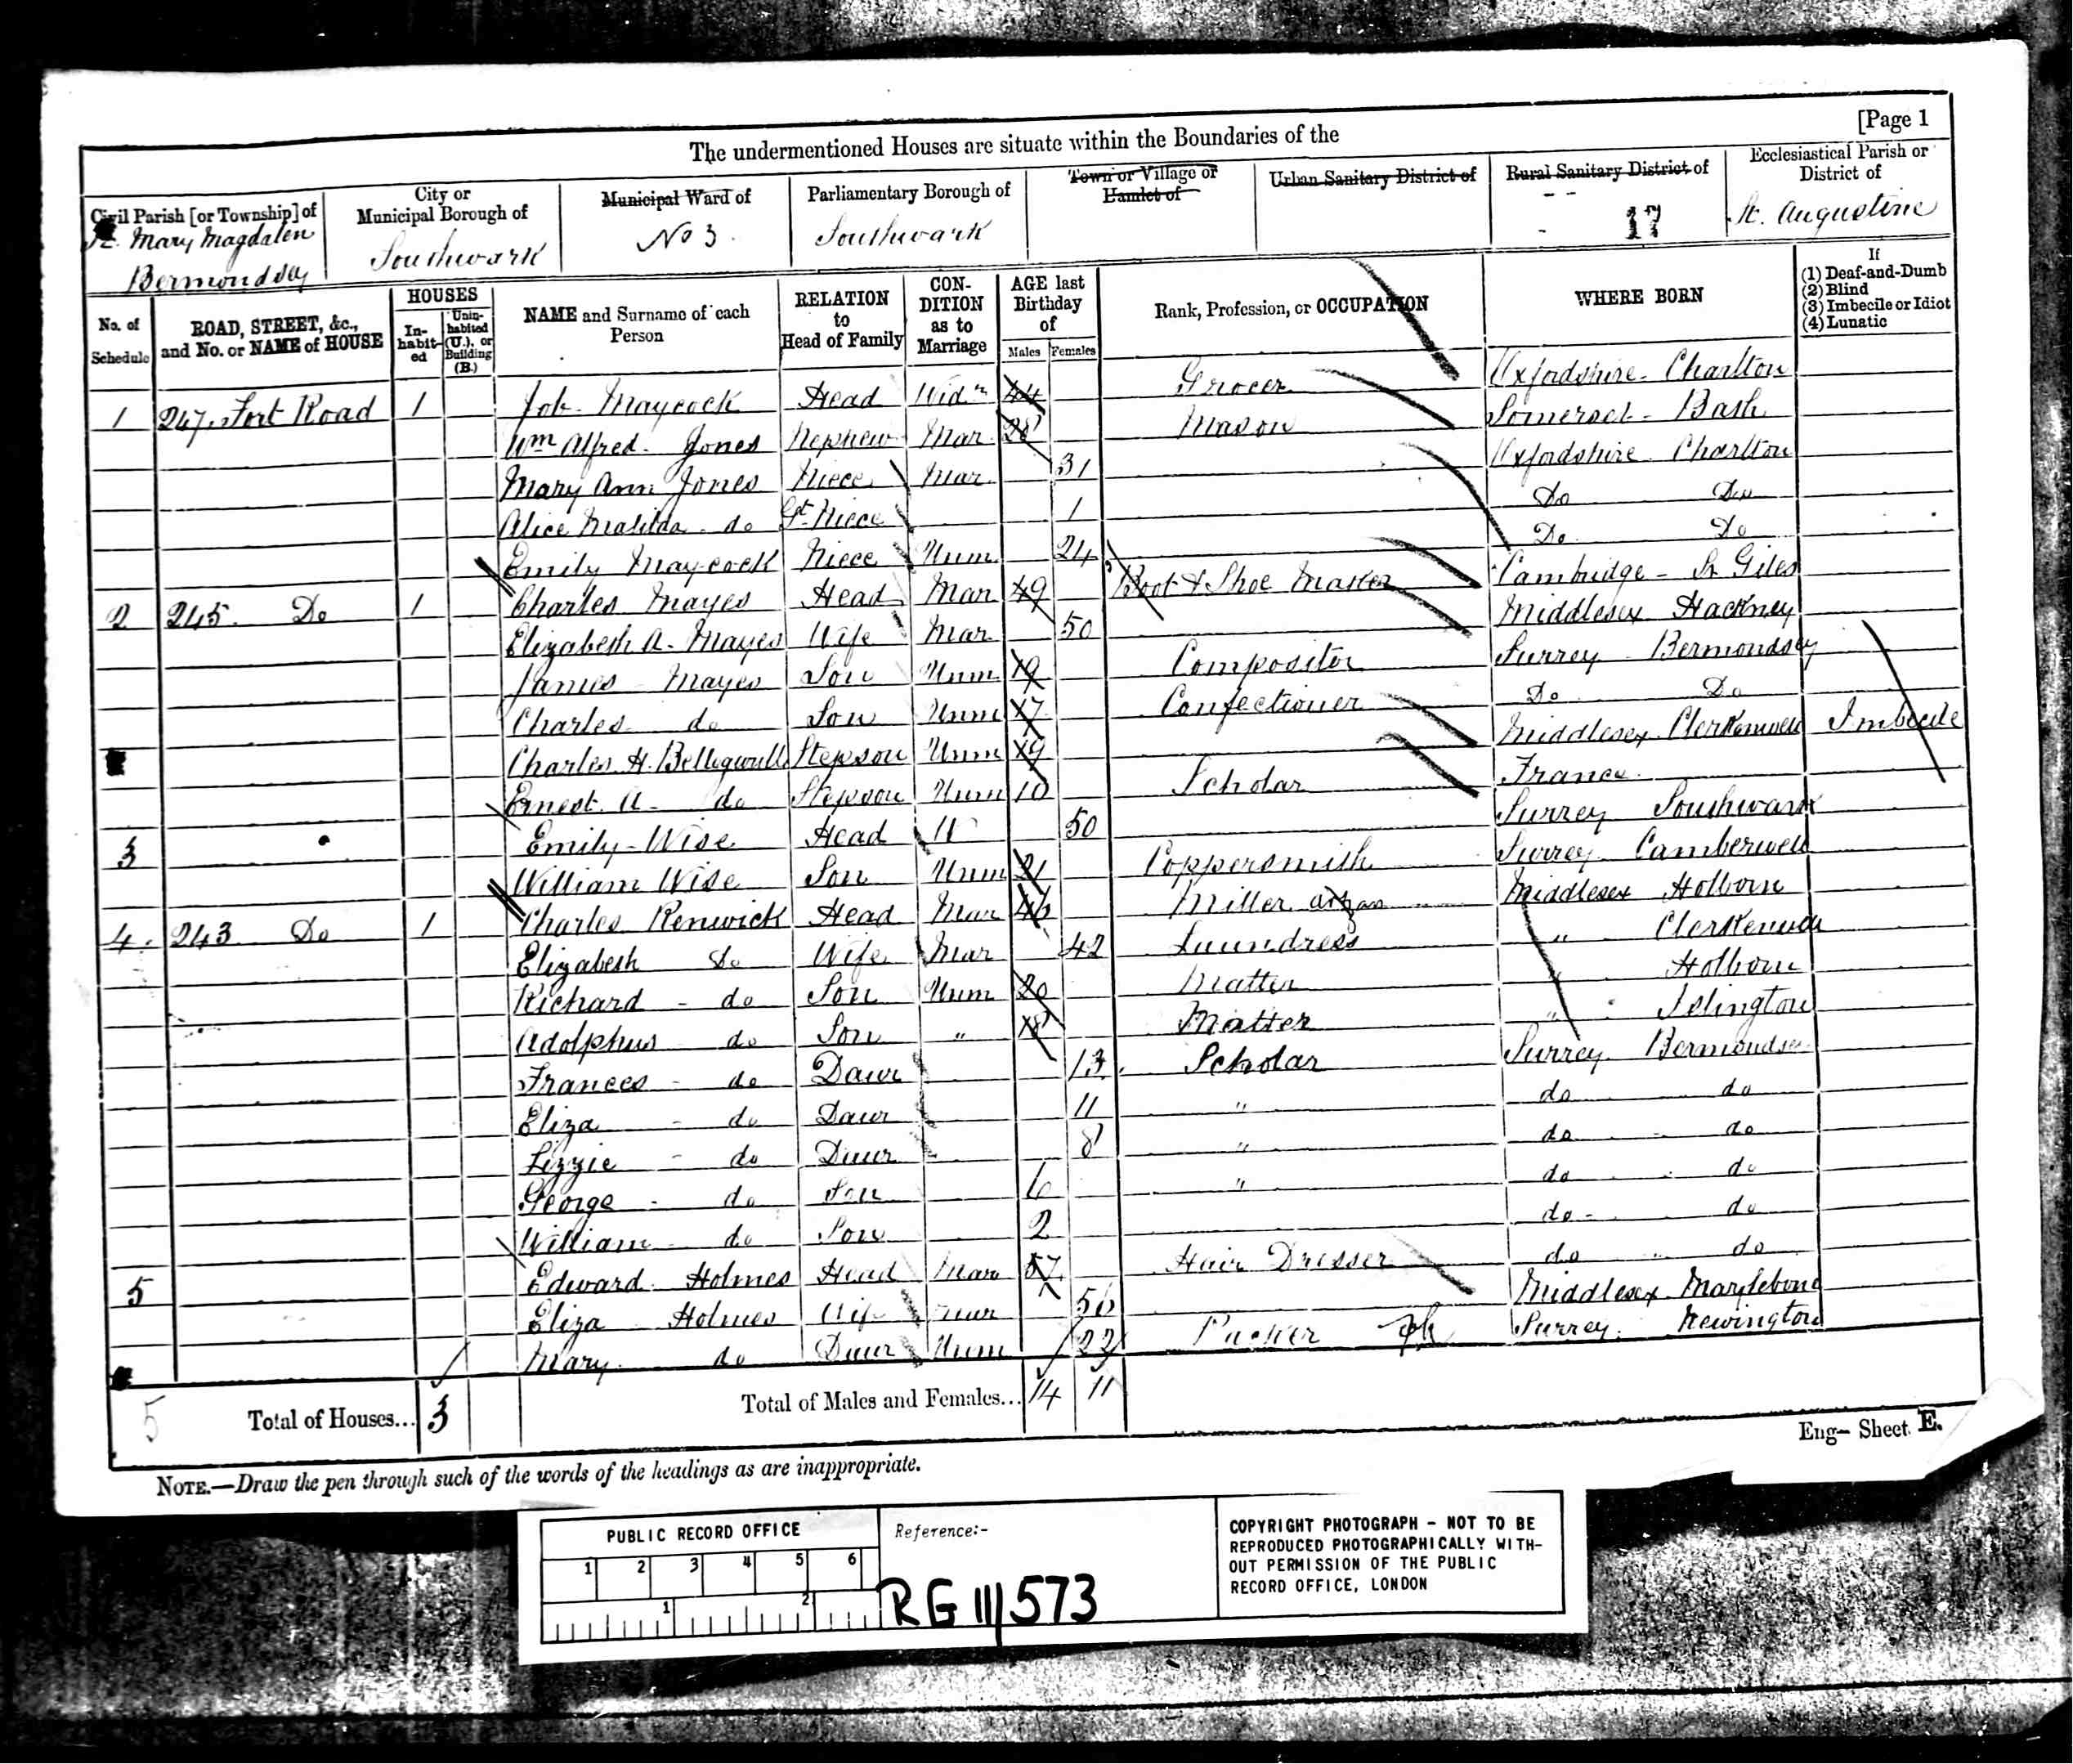 [Page 1
The undermentioned Houses are situate within the Boundaries of the
Civil Parish [or Township] of
St. Mary Magdalen
Bermondsey
City or
Municipal Borough of
Southwark
Municipal Ward of
No 3
Parliamentary Borough of
Southwark
Town or Village or
Hamlet of
Urban Sanitary District of
Rural Sanitary District of
17
Ecclesiastical Parish or
District of
St. Augustine
No. of
Schedule
ROAD, STREET, &c.,
and No. or NAME of HOUSE
HOUSES
In-
habit-
ed
Unin-
habited
(U.), or
Building
(B.)
NAME and Surname of each
Person
RELATION
to
Head of Family
CON-
DITION
as to
Marriage
AGE last
Birthday
of
Males Females
Rank, Profession, or OCCUPATION
WHERE BORN
If
(1) Deaf-and-Dumb
(2) Blind
(3) Imbecile or Idiot
(4) Lunatic
1 247, Fort Road 1 Job Maycock Head Widr 44 Grocer Oxfordshire - Charlton
Wm Alfred Jones Nephew Mar 28 Mason Somerset - Bath
Mary Ann Jones Niece Mar 31 Oxfordshire Charlton
Alice Matilda do Gt Niece 1 Do Do
Emily Maycock Niece Unm 24 Do Do
2 245 Do 1 Charles Mayes Head Mar 49 Boot & Shoe Maker Cambridge - St Giles
Elizabeth A. Mayes Wife Mar 50 Middlesex Hackney
James Mayes Son Unm 19 Compositor Surrey Bermondsey
Charles do Son Unm 17 Confectioner Do Do
Charles H. Stepson Unm 19 Middlesex Clerkenwell Imbecile
Ernest A. do Stepson Unm 10 Scholar France
3 Emily Wise Head W 50 Surrey Southwark
William Wise Son Unm 21 Coppersmith Surrey Camberwell
4. 243 Do 1 Charles Renwick Head Mar 46 Miller Middlesex Holborn
Elizabeth Do Wife Mar 42 Laundress " Clerkenwell
Richard - do Son Unm 20 Matter " Holborn
Adolphus - do Son " 18 Matter " Islington
Frances - do Daur 13 Scholar Surrey Bermondsey
Eliza - do Daur 11 " do do
Lizzie - do Daur 8 " do do
George - do Son 6 " do do
William - do Son 2 do - do
5 Edward Holmes Head Mar 57 Hair Dresser do " do
Eliza Holmes Wife Mar 56 Middlesex Marylebone
Mary do Daur Unm 22 Packer Surrey Newington
5 Total of Houses... 3 Total of Males and Females... 14 11
Eng— Sheet E.
NOTE.—Draw the pen through such of the words of the headings as are inappropriate.
PUBLIC RECORD OFFICE
1 2 3 4 5 6
1 2
Reference:-
RG 11/573
COPYRIGHT PHOTOGRAPH - NOT TO BE
REPRODUCED PHOTOGRAPHICALLY WITH-
OUT PERMISSION OF THE PUBLIC
RECORD OFFICE, LONDON